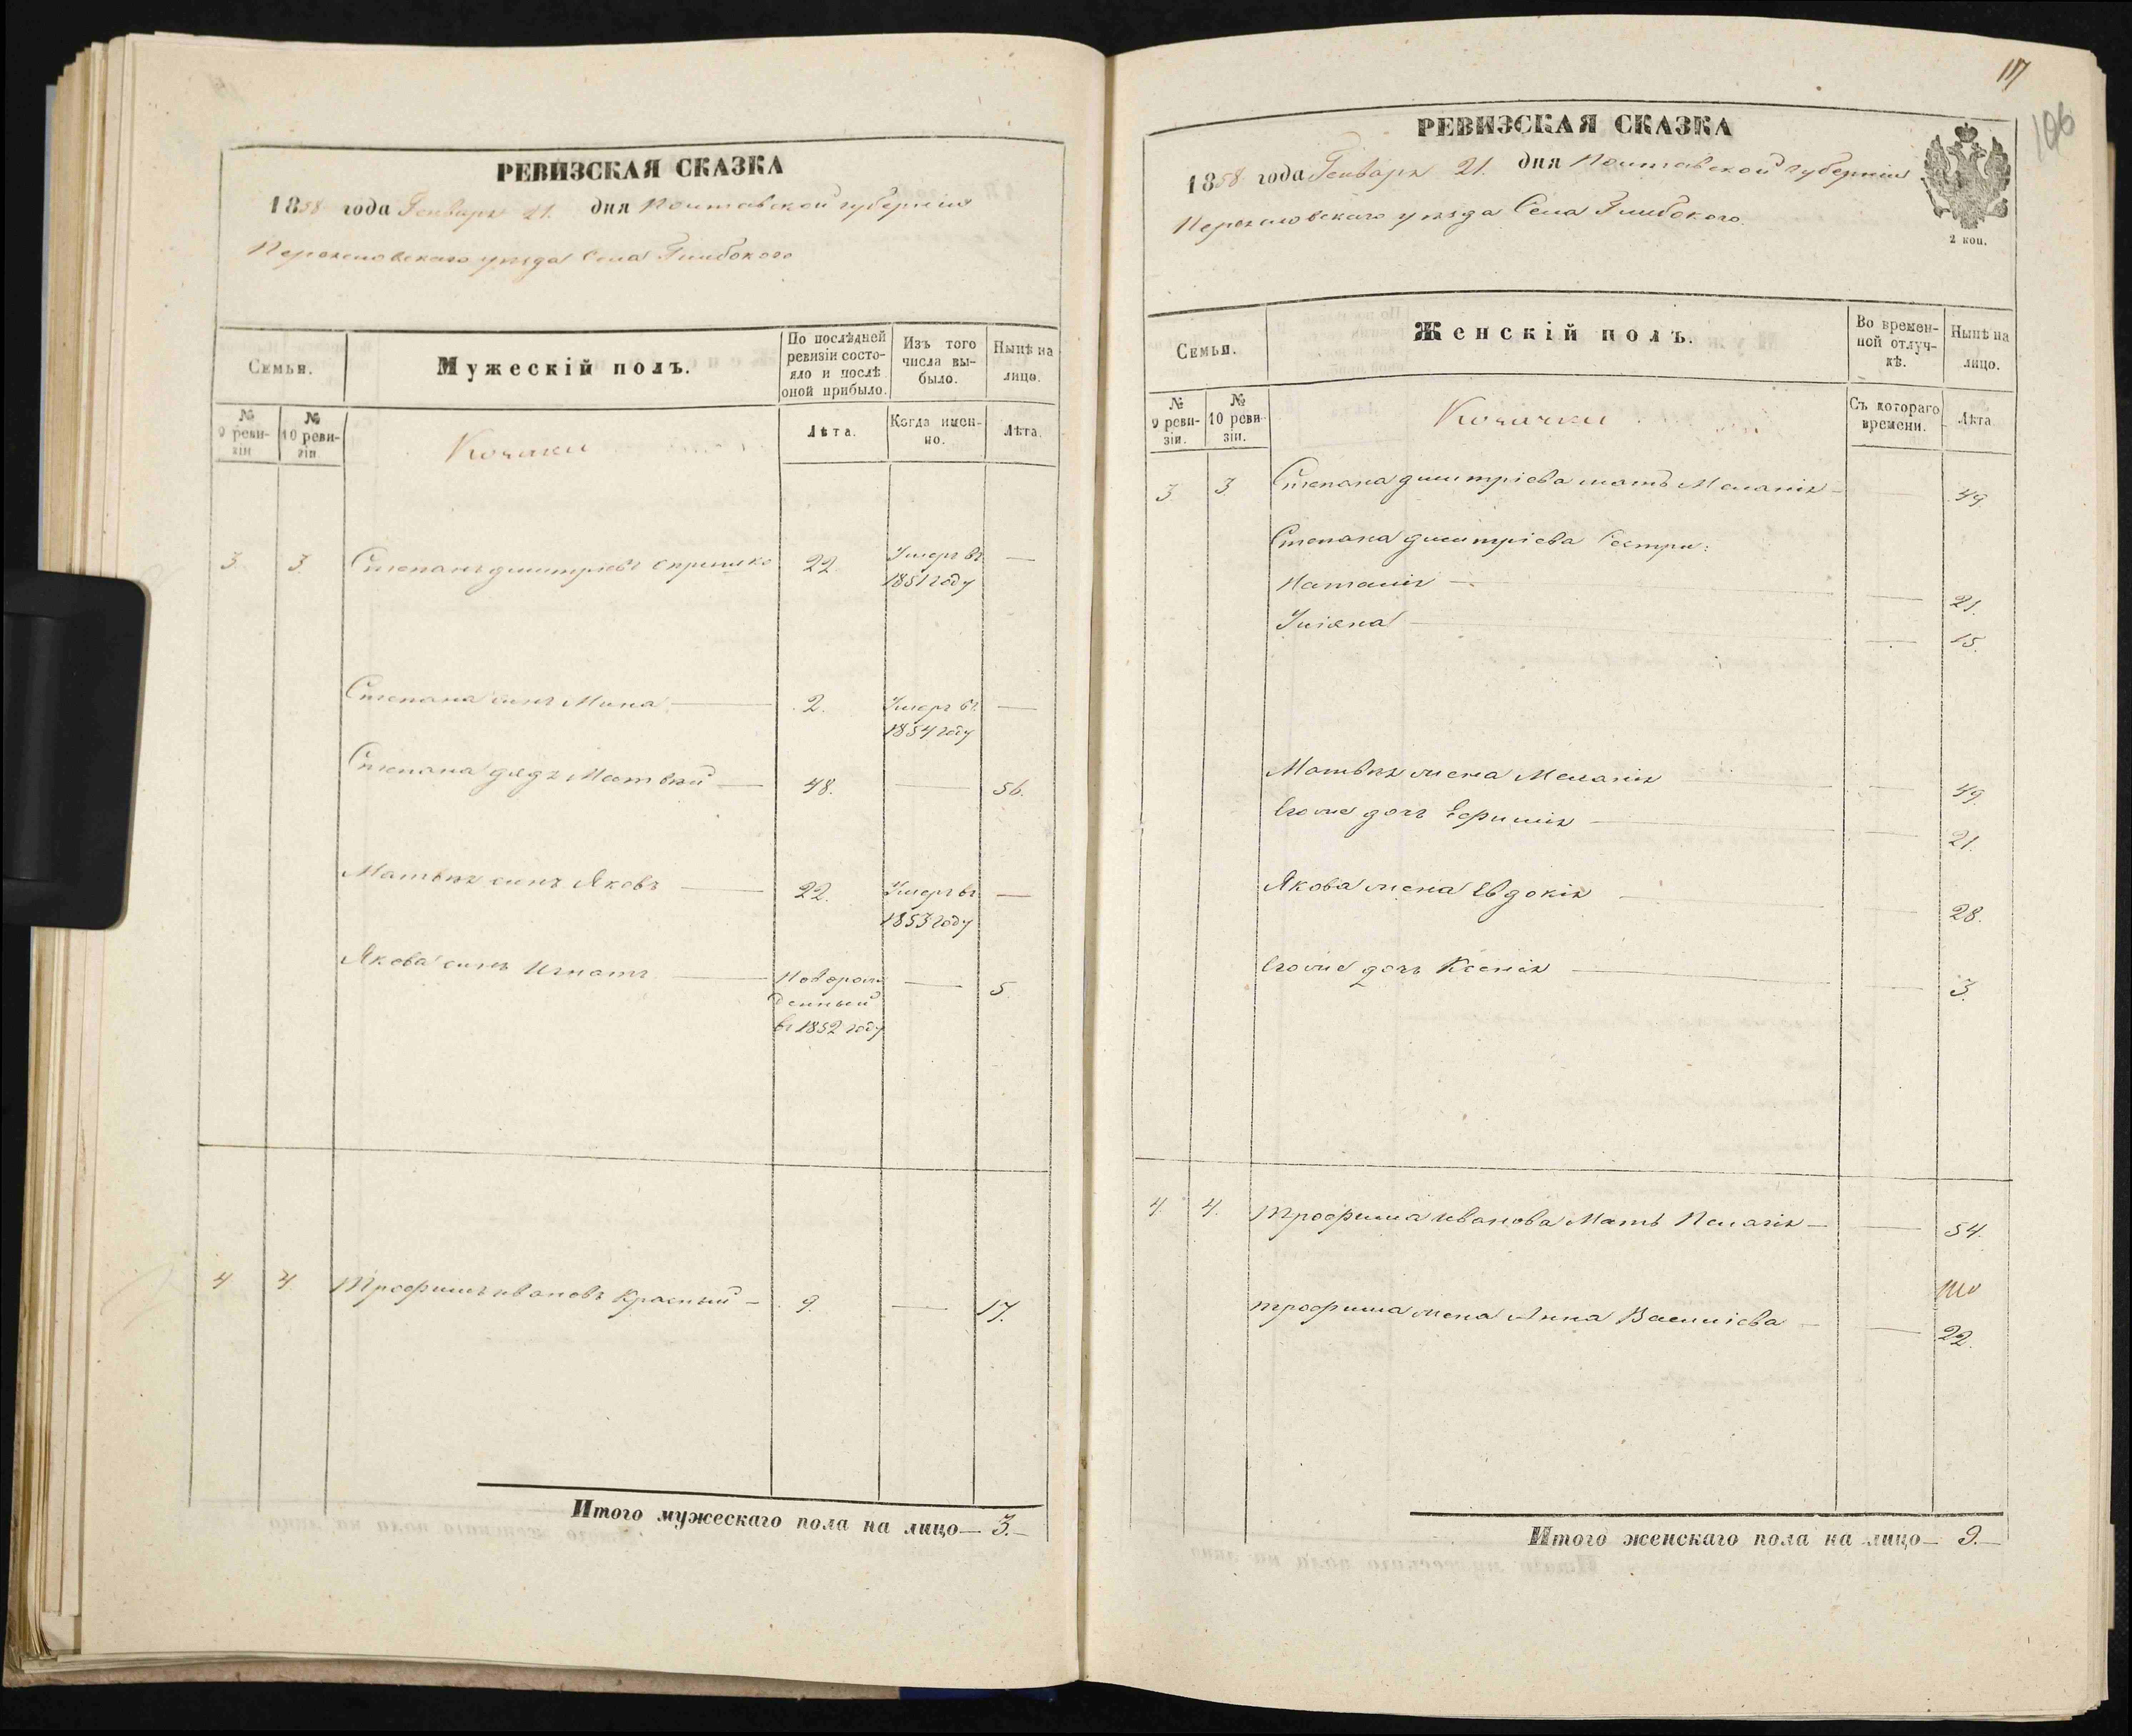 РЕВИЗСКАЯ СКАЗКА
1858 года Генваря 21. дня Полтавской губерніи
Переяславскаго уѣзда Села Глибокого
Семьи.
Мужескій полъ.
По послѣдней ревизіи состояло и послѣ оной прибыло.
Изъ того числа выбыло.
Нынѣ на лицо.
№ 9 ревизіи
№ 10 ревизіи.
Козаки
Лѣта.
Когда именно.
Лѣта.
3. 3. Степанъ Дмитріевъ 22. Умеръ въ —
1851 году
Степана сынъ Мина — 2. Умеръ въ —
1854 году
Степана дядя Матвѣй — 48. — 56.
Матвѣя сынъ Яковъ — 22. Умеръ въ —
1853 году
Якова сынъ Игнатъ — Новорож — 5.
денный
въ 1852 году
4 4. Трофимъ Ивановъ Красный — 9. — 17.
Итого мужескаго пола на лицо — 3. —
117
106
РЕВИЗСКАЯ СКАЗКА
1858 года Генваря 21. дня Полтавской губерніи
Переяславскаго уѣзда Села Глибокого
2 коп.
Семьи.
Женскій полъ.
Во временной отлучкѣ.
Нынѣ на лицо.
№ 9 ревизіи.
№ 10 ревизіи.
Козачки
Съ котораго времени.
Лѣта
3. 3. Степана Дмитріева мать Меланія — — 49
Степана Дмитріева Сестры:
Наталія — — 21.
Уліяна — — 15.
Матвѣя жена Меланія — — 49.
Его же дочь Ефимія — — 21.
Якова жена Евдокія — — 28.
Его же дочь Ксенія — — 3.
4. 4. Трофима Иванова Мать Пелагія — — 54.
Трофима жена Анна Василіева — — 22.
Итого женскаго пола на лицо — 9. —